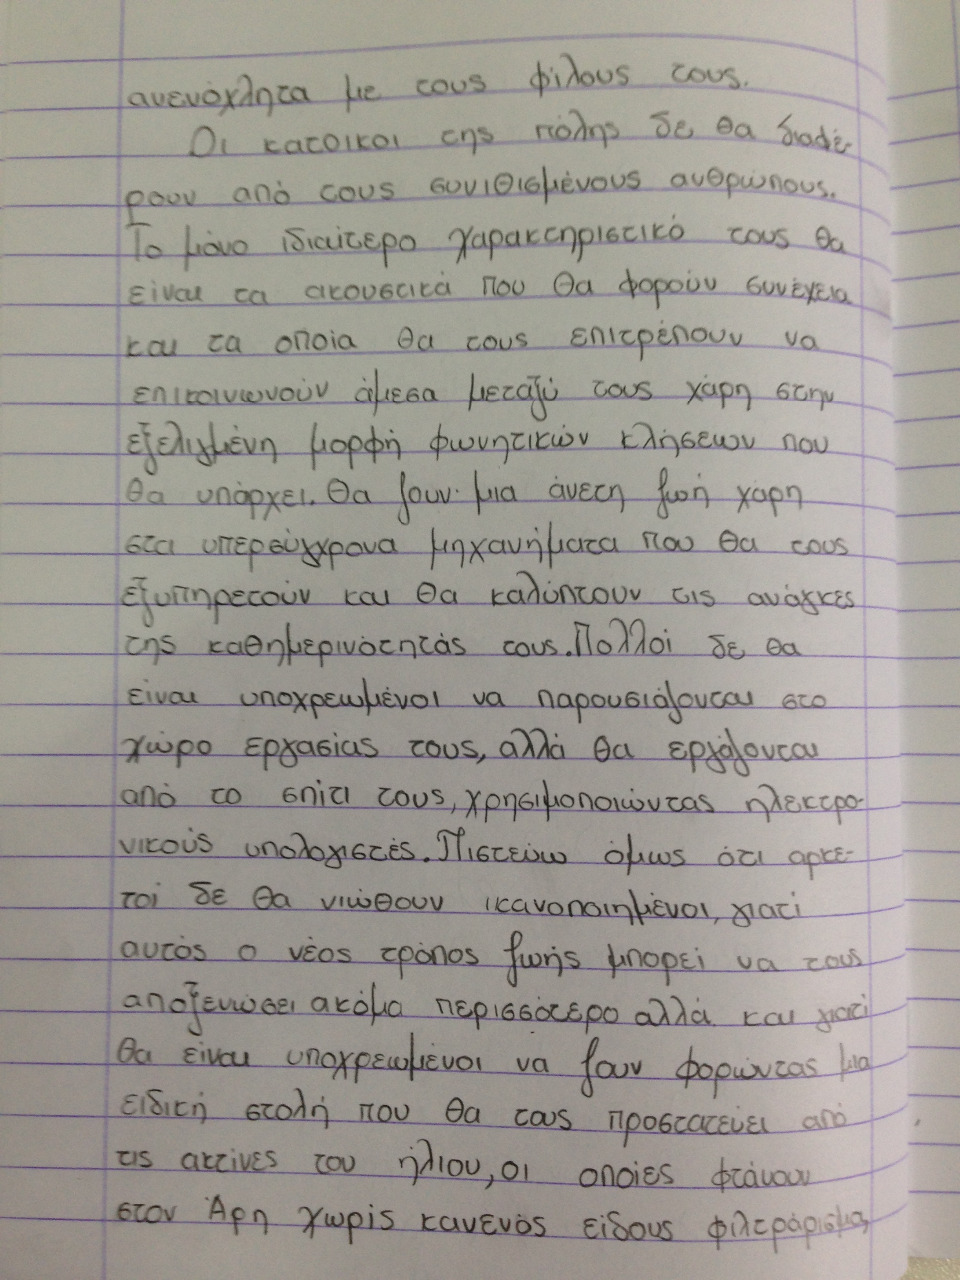 ανενόχλητα με τους φίλους τους.
Οι κάτοικοι της πόλης δε θα διαφέ-
ρουν από τους συνιθισμένους ανθρώπους.
Το μόνο ιδιαίτερο χαρακτηριστικό τους θα
είναι τα ακουστικά που θα φορούν συνέχεια
και τα οποία θα τους επιτρέπουν να
επικοινωνούν άμεσα μεταξύ τους χάρη στην
εξελιγμένη μορφή φωνητικών κλήσεων που
θα υπάρχει. Θα ζουν μια άνετη ζωή χάρη
στα υπερσύγχρονα μηχανήματα που θα τους
εξυπηρετούν και θα καλύπτουν τις ανάγκες
της καθημερινότητάς τους. Πολλοί δε θα
είναι υποχρεωμένοι να παρουσιάζονται στο
χώρο εργασίας τους, αλλά θα εργάζονται
από το σπίτι τους, χρησιμοποιώντας ηλεκτρο-
νικούς υπολογιστές. Πιστεύω όμως ότι αρκε-
τοί δε θα νιώθουν ικανοποιημένοι, γιατί
αυτός ο νέος τρόπος ζωής μπορεί να τους
αποξενώσει ακόμα περισσότερο αλλά και γιατί
θα είναι υποχρεωμένοι να ζουν φορώντας μια
ειδική στολή που θα τους προστατεύει από
τις ακτίνες του ήλιου, οι οποίες φτάνουν
στον Άρη χωρίς κανενός είδους φιλτράρισμα,